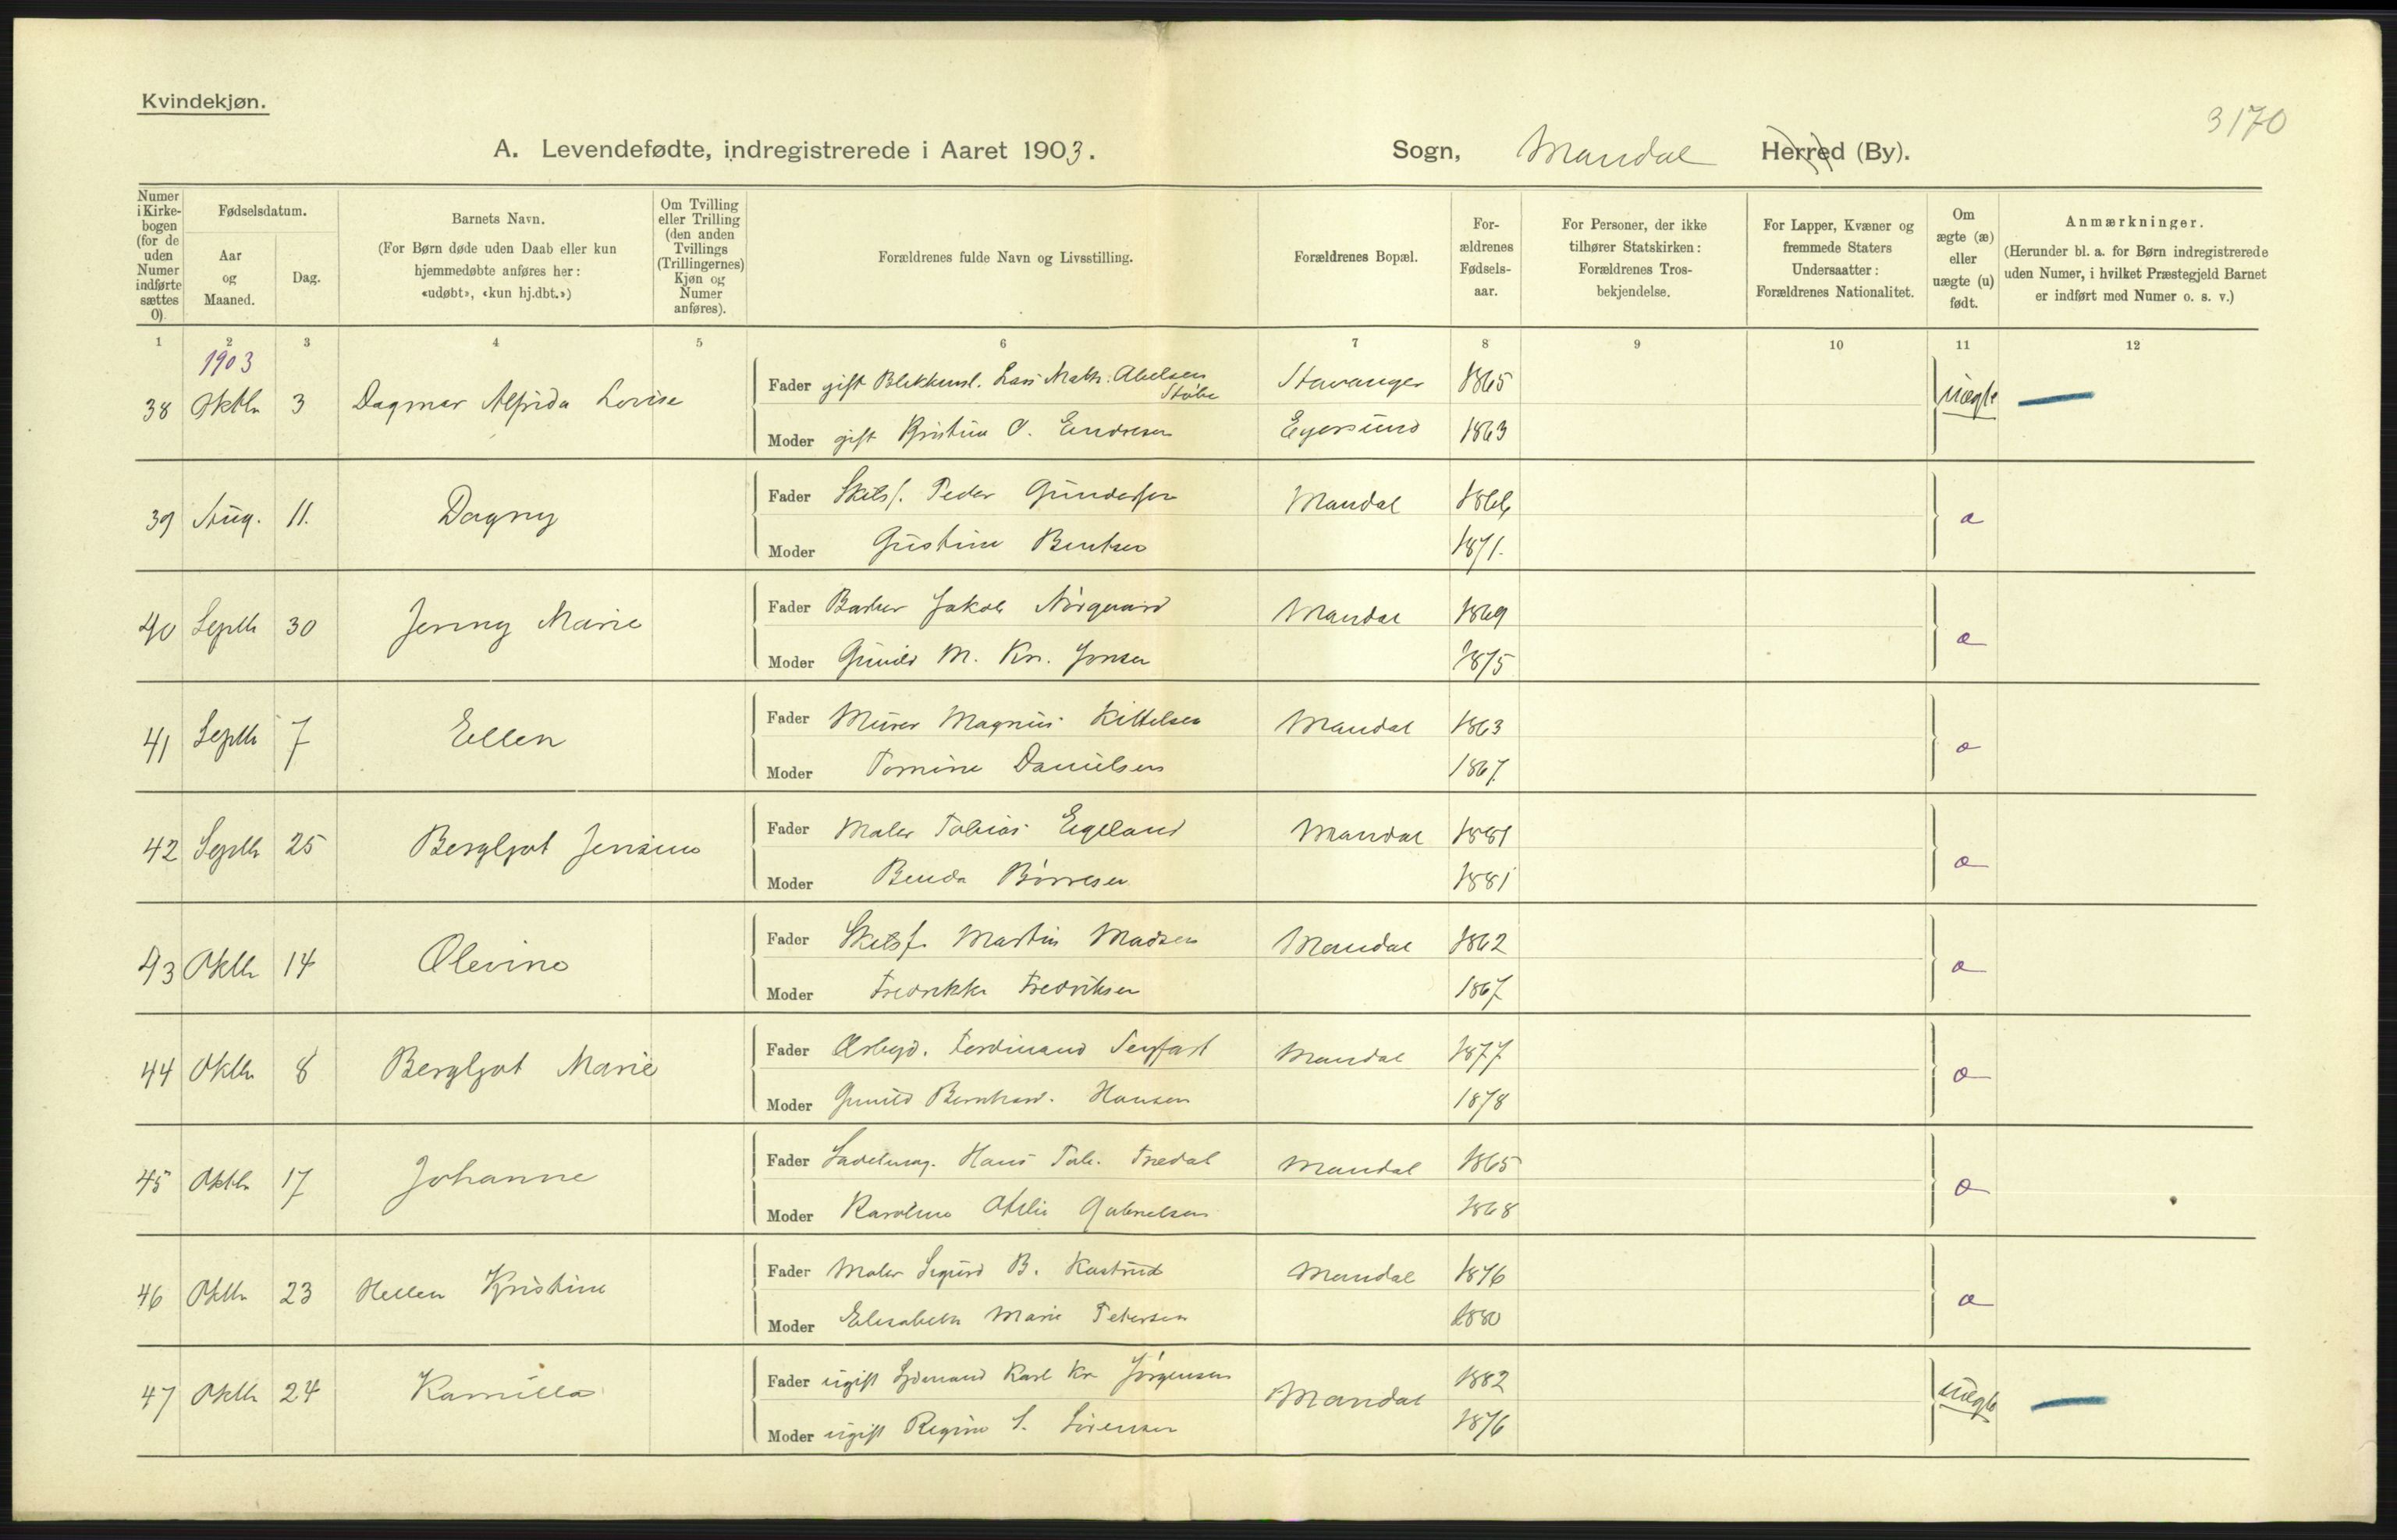 Kvindekjøn.
3170
A. Levendefødte, indregistrerede i Aaret 1903.
Sogn, Mandal Herred (By).
Numer i Kirkebogen (for de uden Numer indførte sættes 0).
Fødselsdatum.
Aar og Maaned.
Dag.
Barnets Navn.
(For Børn døde uden Daab eller kun hjemmedøbte anføres her: «udøbt», «kun hj.dbt.»)
Om Tvilling eller Trilling (den anden Tvillings (Trillingernes) Kjøn og Numer anføres).
Forældrenes fulde Navn og Livsstilling.
Forældrenes Bopæl.
For-ældrenes Fødsels-aar.
For Personer, der ikke tilhører Statskirken: Forældrenes Tros-bekjendelse.
For Lapper, Kvæner og fremmede Staters Undersaatter: Forældrenes Nationalitet.
Om ægte (æ) eller uægte (u) født.
Anmærkninger.
(Herunder bl. a. for Børn indregistrerede uden Numer, i hvilket Præstegjeld Barnet er indført med Numer o. s. v.)
1 2 3 4 5 6 7 8 9 10 11 12
1903
38 Oktbr 3 Dagmar Alfrida Lovise Fader gift Lars Math. Abelsen Stavanger 1865 uægte
Moder gift Kristine O. Endresen Egersund 1863
39 Aug. 11. Dagny Fader Skibsf. Peder Gundersen Mandal 1866 æ
Moder Gustine Bentsen 1871.
40 Septb 30 Jenny Marie Fader Barber Jakob Nørgaard Mandal 1869 æ
Moder Gunild M. Kr. Jonsen 1875
41 Septb 7 Ellen Fader Murer Magnus Kittelsen Mandal 1863 æ
Moder Tomine Danielsen 1867
42 Septb 25 Bergljot Jensine Fader Maler Tobias Egeland Mandal 1881 æ
Moder Benda Børresen 1881
43 Oktbr 14 Olevine Fader Skibsf. Martin Madsen Mandal 1862 æ
Moder Fredrikke Fredriksen 1867
44 Oktbr 8 Bergljot Marie Fader Ferdinand Seyfart Mandal 1877 æ
Moder Gunild Bernhard. Hansen 1878
45 Oktbr 17 Johanne Fader Sadelmag. Hans Tob. Mandal 1865 æ
Moder Karoline Otilie Gabrielsen 1868
46 Oktbr 23 Hellen Kristine Fader Maler Sigurd B. Kastrud Mandal 1876 æ
Moder Elisabeth Marie Petersen 1880
47 Oktbr 24 Kamilla Fader ugift Sjømand Karl Kr. Jørgensen Mandal 1882 uægte
Moder ugift Regine S. Sørensen 1876